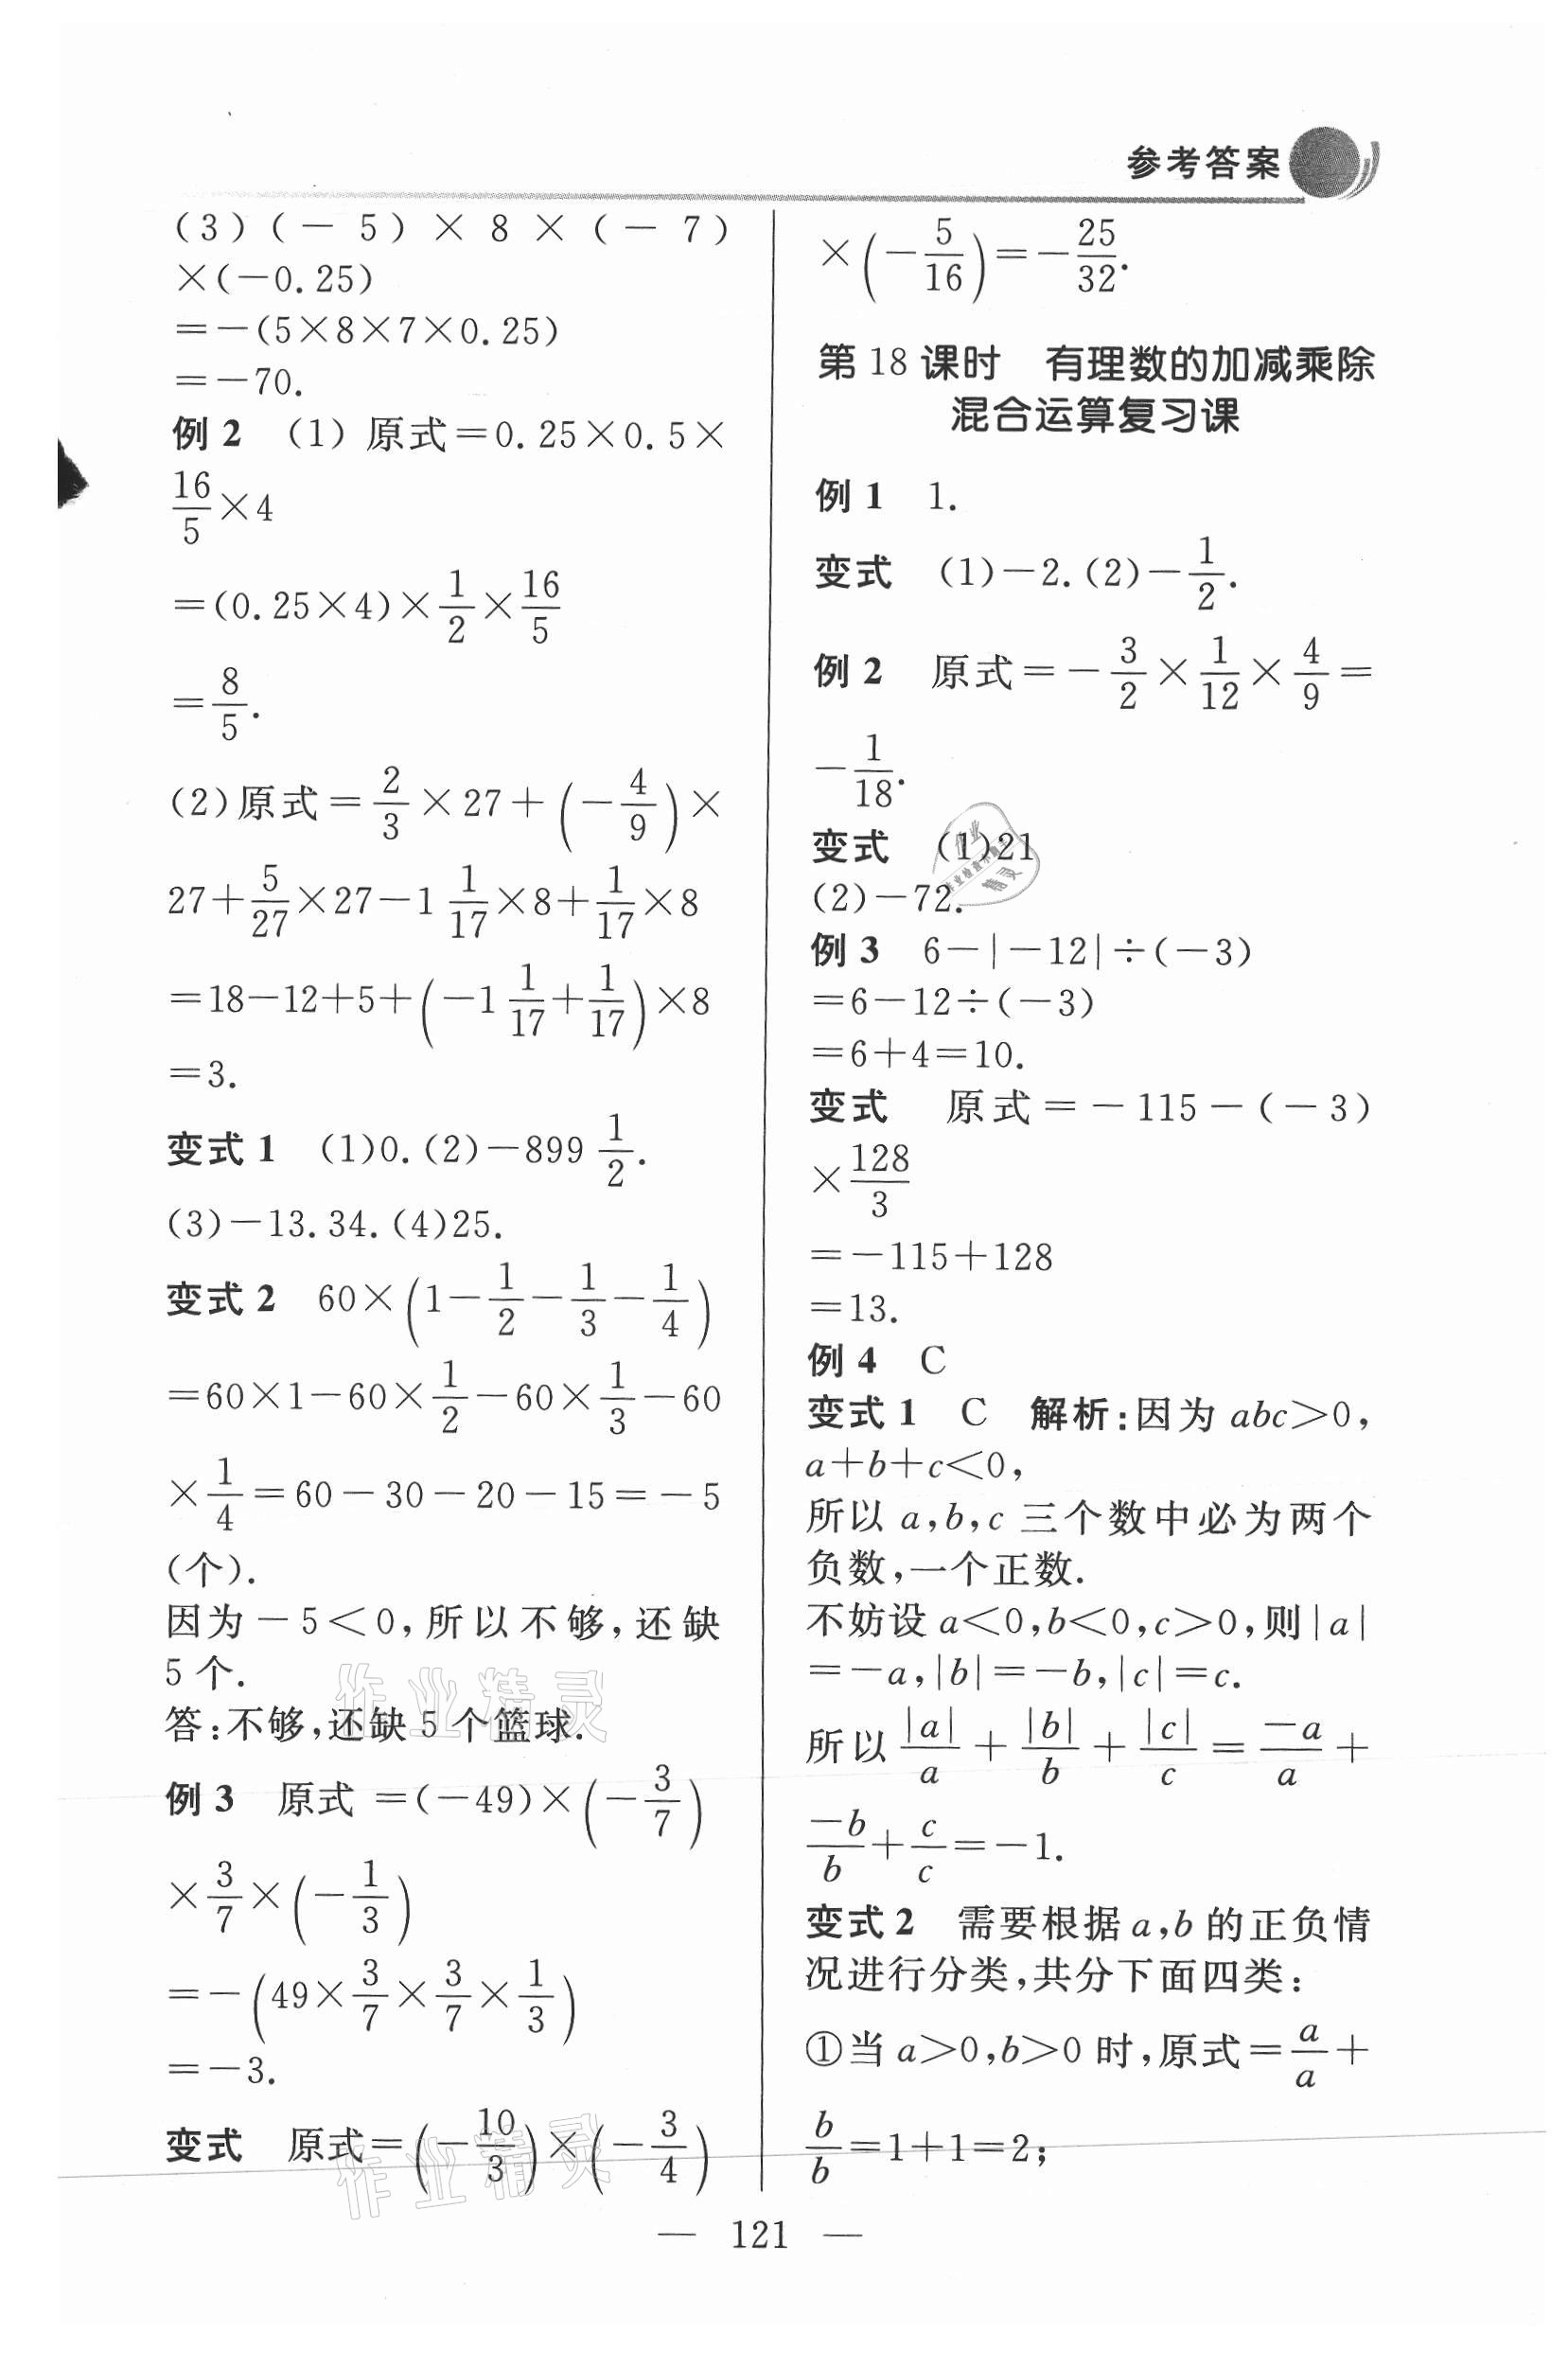 参考答案
(3)(-5)×8×(-7)
×(-0.25)
=-(5×8×7×0.25)
=-70.
例 2 (1) 原式=0.25×0.5×
16/5×4
=(0.25×4)×1/2×16/5
=8/5.
(2)原式=2/3×27+(-4/9)×
27+5/27×27-1 1/17×8+1/17×8
=18-12+5+(-1 1/17+1/17)×8
=3.
变式 1 (1)0.(2)-899 1/2.
(3)-13.34.(4)25.
变式 2 60×(1-1/2-1/3-1/4)
=60×1-60×1/2-60×1/3-60
×1/4=60-30-20-15=-5
(个).
因为-5<0,所以不够,还缺
5 个.
答:不够,还缺 5 个篮球.
例 3 原式 =(-49)×(-3/7)
×3/7×(-1/3)
=-(49×3/7×3/7×1/3)
=-3.
变式 原式=(-10/3)×(-3/4)
×(-5/16)=-25/32.
第 18 课时 有理数的加减乘除
混合运算复习课
例 1 1.
变式 (1)-2.(2)-1/2.
例 2 原式=-3/2×1/12×4/9=
-1/18.
变式 (1)21
(2)-72.
例 3 6-|-12|÷(-3)
=6-12÷(-3)
=6+4=10.
变式 原式=-115-(-3)
×128/3
=-115+128
=13.
例 4 C
变式 1 C 解析:因为 abc>0,
a+b+c<0,
所以 a,b,c 三个数中必为两个
负数,一个正数.
不妨设 a<0,b<0,c>0,则|a|
=-a,|b|=-b,|c|=c.
所以 |a|/a+|b|/b+|c|/c=-a/a+
-b/b+c/c=-1.
变式 2 需要根据 a,b 的正负情
况进行分类,共分下面四类:
①当 a>0,b>0 时,原式=a/a+
b/b=1+1=2;
— 121 —
作业精灵
作业精灵